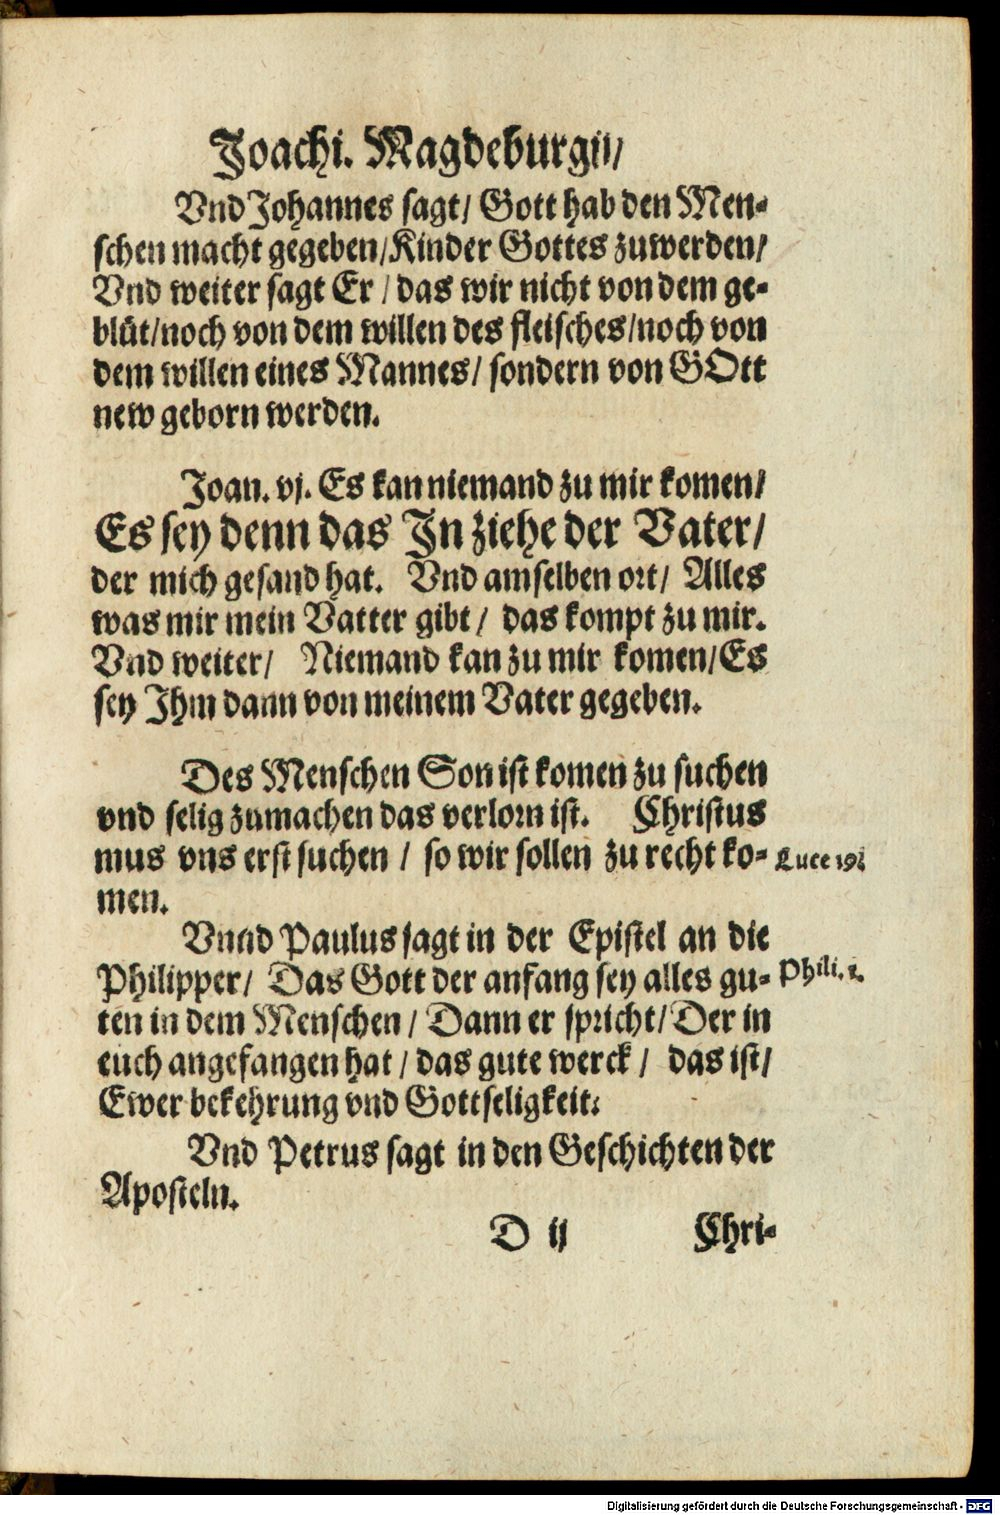 Joachi. Magdeburgij/
Vnd Johannes sagt/ Gott hab den Men-
schen macht gegeben/Kinder Gottes zuwerden/
Vnd weiter sagt Er / das wir nicht von dem ge-
blüt/noch von dem willen des fleisches/noch von
dem willen eines Mannes/ sondern von GOtt
new geborn werden.
Joan. vj. Es kan niemand zu mir komen/
Es sey denn das In ziehe der Vater/
der mich gesand hat. Vnd am selben ort/ Alles
was mir mein Vatter gibt / das kompt zu mir.
Vnd weiter/ Niemand kan zu mir komen/Es
sey Ihm dann von meinem Vater gegeben.
Des Menschen Son ist komen zu suchen
vnd selig zumachen das verlorn ist. Christus
mus vns erst suchen / so wir sollen zu recht ko-
Luce 19.
men.
Vnnd Paulus sagt in der Epistel an die
Philipper/ Das Gott der anfang sey alles gu-
Phili. 1.
ten in dem Menschen / Dann er spricht/Der in
euch angefangen hat / das gute werck / das ist/
Ewer bekehrung vnd Gottseligkeit:
Vnd Petrus sagt in den Geschichten der
Aposteln.
D ij
Chri-
Digitalisierung gefördert durch die Deutsche Forschungsgemeinschaft - DFG